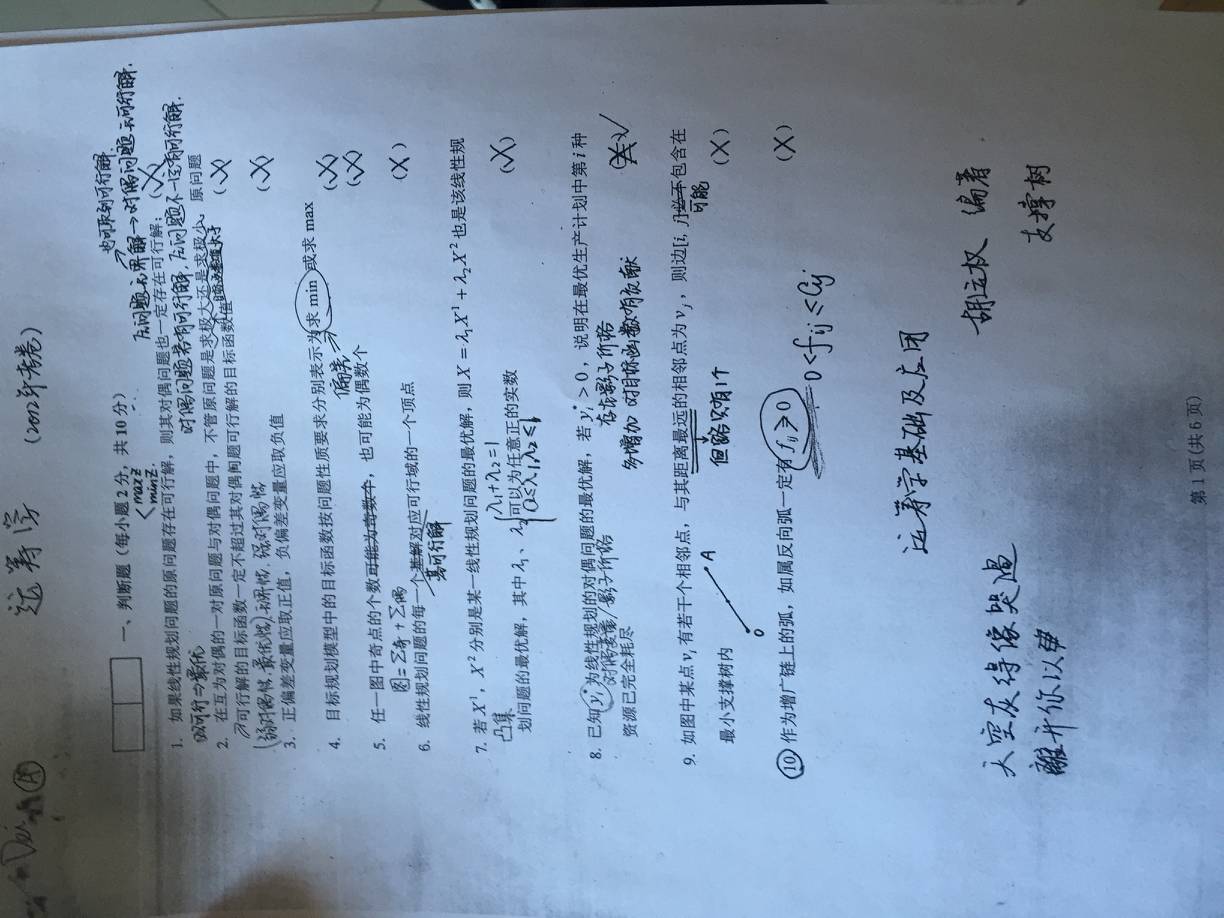 Dei
A
运筹学 (2012年考卷)
一、判断题(每小题2分,共10分)
maxz
minz.
也可取到可行解.
左问题无界解→对偶问题无可行解.
1. 如果线性规划问题的原问题存在可行解,则其对偶问题也一定存在可行解; (X)
双可行⇒最优
对偶问题若有可行解,左问题不一定有可行解.
2. 在互为对偶的一对原问题与对偶问题中,不管原问题是求极大还是求极小,原问题
可行解的目标函数一定不超过其对偶问题可行解的目标函数值 (X)
(弱对偶性.最优性)无界性.强对偶性
3. 正偏差变量应取正值,负偏差变量应取负值 (X)
4. 目标规划模型中的目标函数按问题性质要求分别表示为求 min 或求 max (X)
偏差⇒
5. 任一图中奇点的个数可能为奇数个,也可能为偶数个 (X)
图=Σ奇+Σ偶
6. 线性规划问题的每一个基解对应可行域的一个顶点 (X)
基可行解
7. 若 X¹,X² 分别是某一线性规划问题的最优解,则 X = λ₁X¹ + λ₂X² 也是该线性规
凸集
λ₁+λ₂=1
划问题的最优解,其中 λ₁、λ₂ 可以为任意正的实数 (X)
0≤λ₁,λ₂≤1
8. 已知 yᵢ* 为线性规划的对偶问题的最优解,若 yᵢ* > 0,说明在最优生产计划中第 i 种
对偶变量/影子价格 存在影子价格
资源已完全耗尽 √
多增加 对目标函数有贡献
9. 如图中某点 vᵢ 有若干个相邻点,与其距离最远的相邻点为 vⱼ,则边[i, j]必不包含在
可能
最小支撑树内 (X)
A
O
但路只有1个
10 作为增广链上的弧,如属反向弧一定有 fᵢⱼ ≥ 0 (X)
0<fij≤Cij
运筹学基础及应用
胡运权 编著
天空灰得像哭過
離开你以
支撑树
第 1 页(共 6 页)